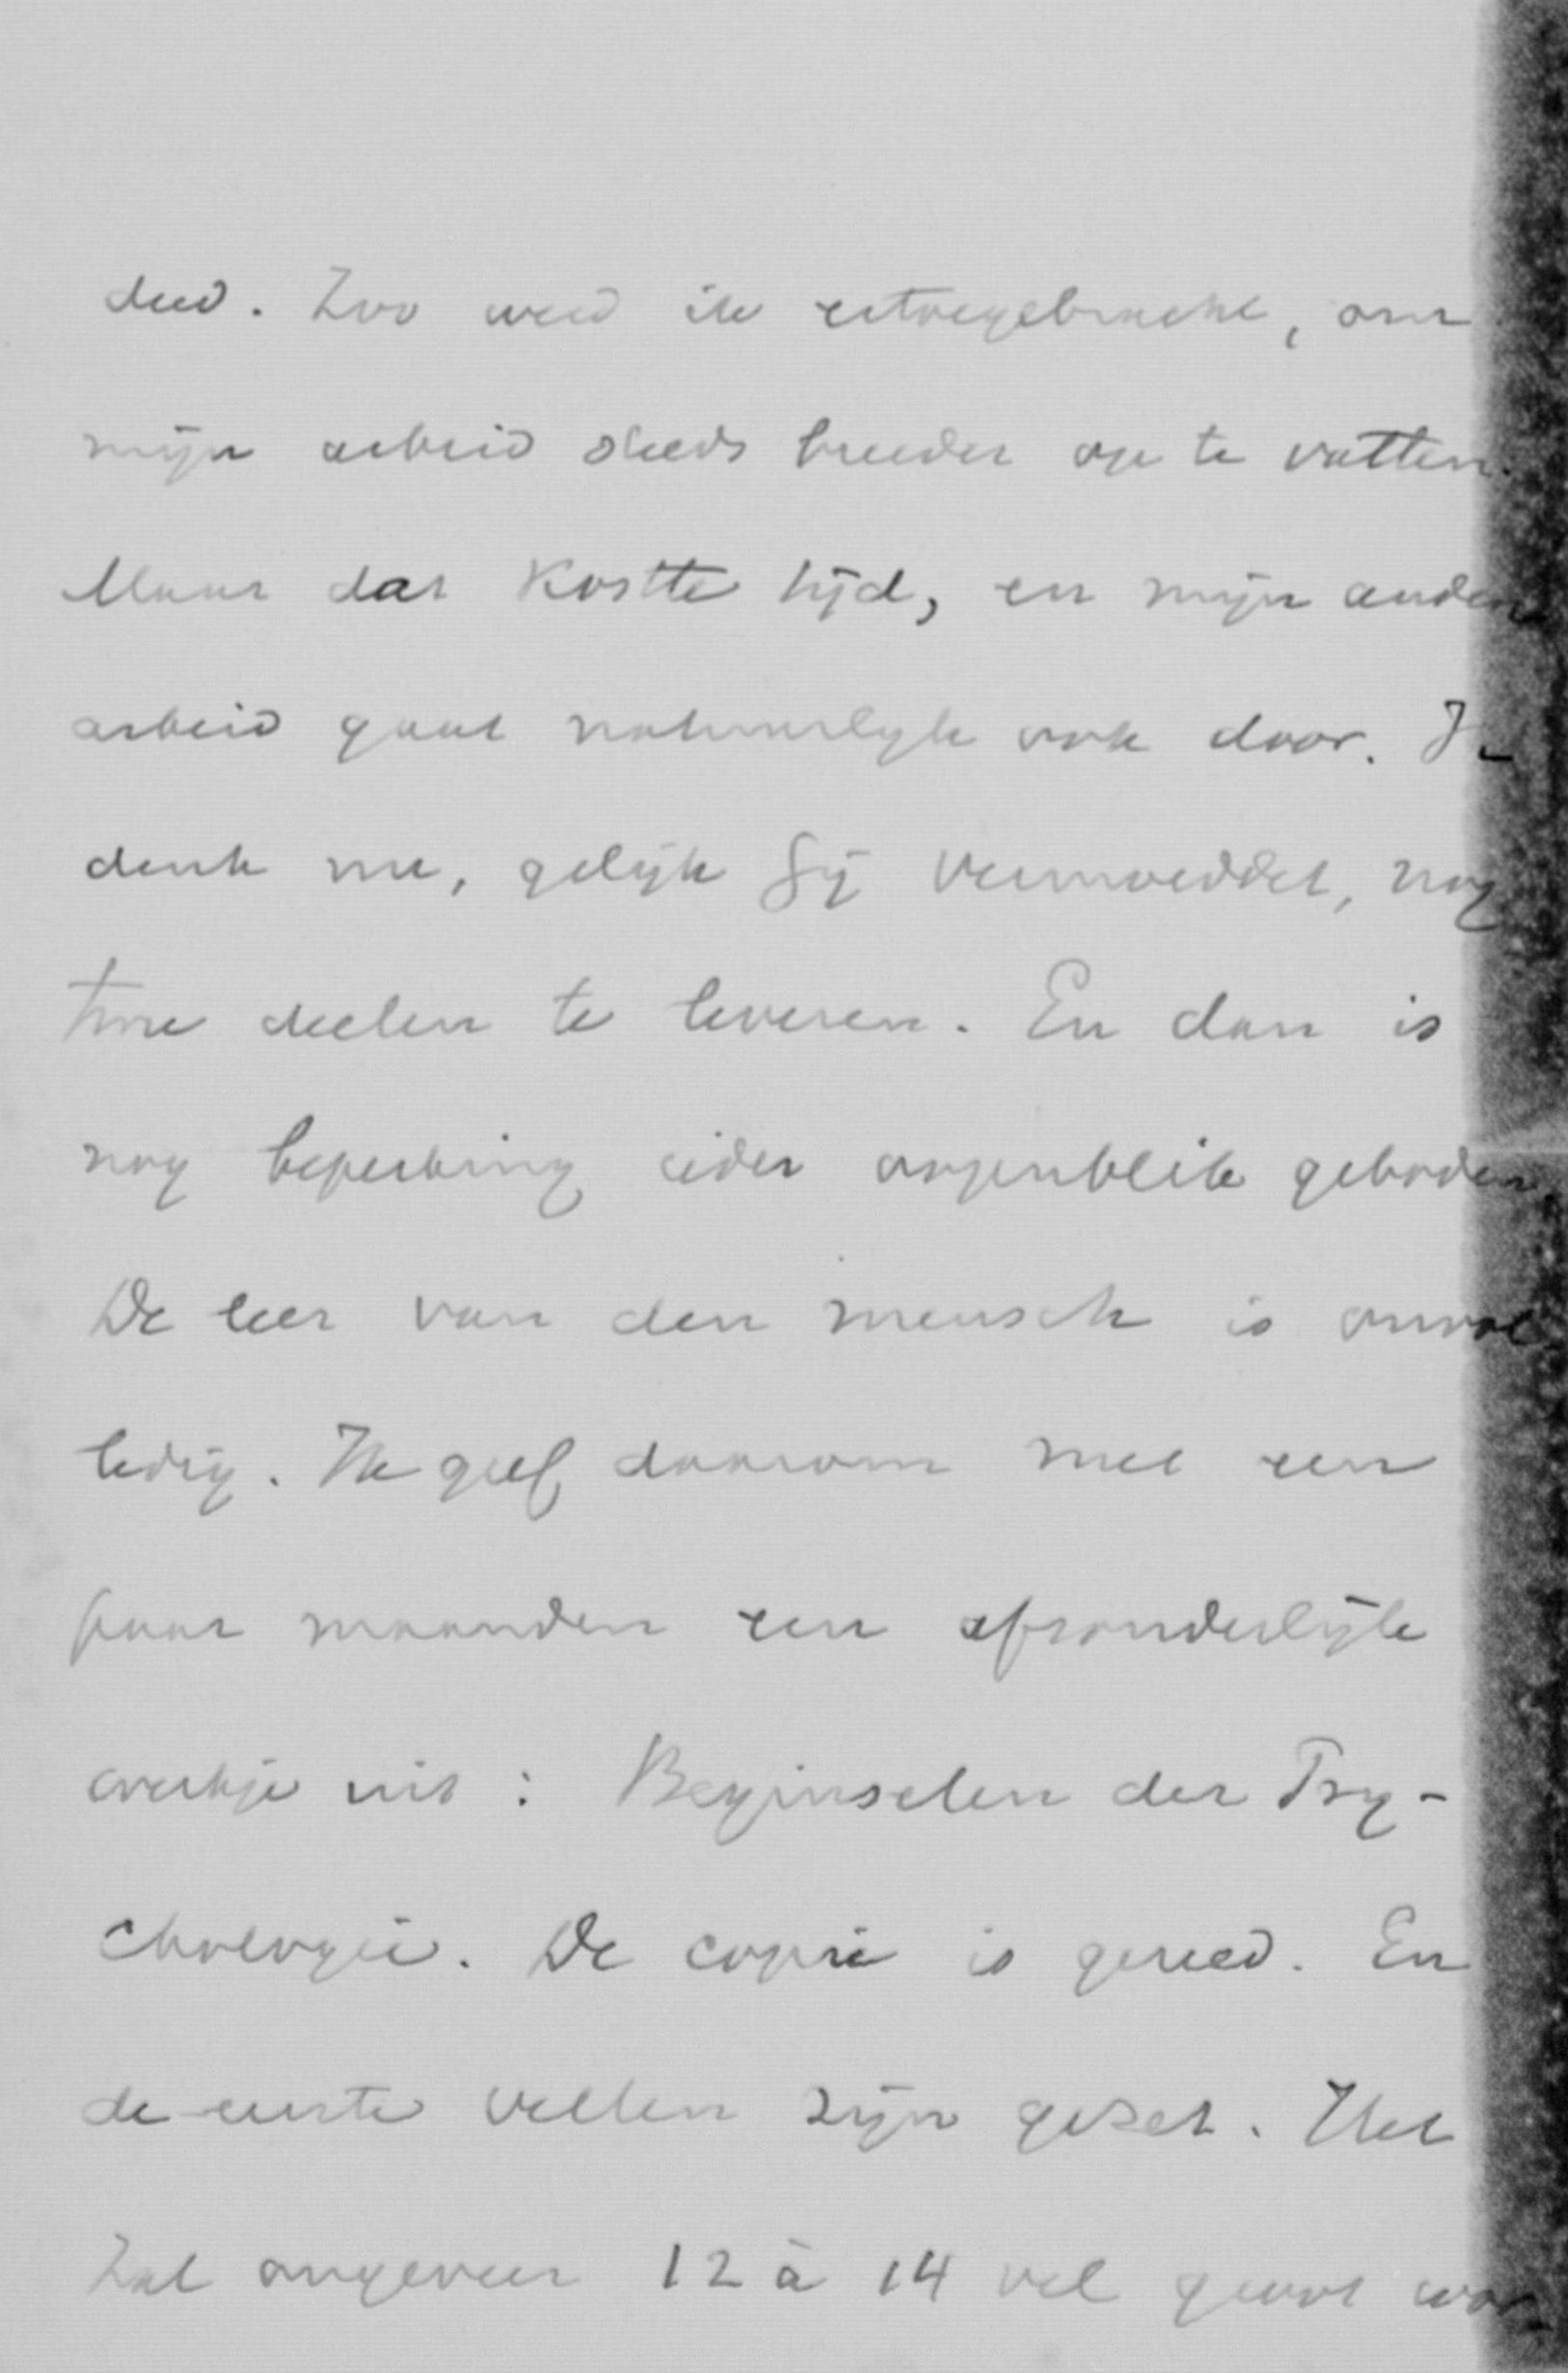 deed. Zoo werd ik ertoegebracht, om
mijn arbeid steeds breeder op te vatten.
Maar dat kostte tijd, en mijn andere
arbeid gaat natuurlijk ook door. Ik
denk me, gelijk Gij vermoeddet, nog
twee deelen te leveren. En dan is
nog beperking ieder oogenblik geboden.
De leer van den mensch is onvol
ledig. Ik geef daarom met een
paar maanden een afzonderlijk
werkje uit: Beginselen der Psy-
chologie. De copie is gereed. En
de eerste vellen zijn gezet. Het
zal ongeveer 12 à 14 vel groot wor